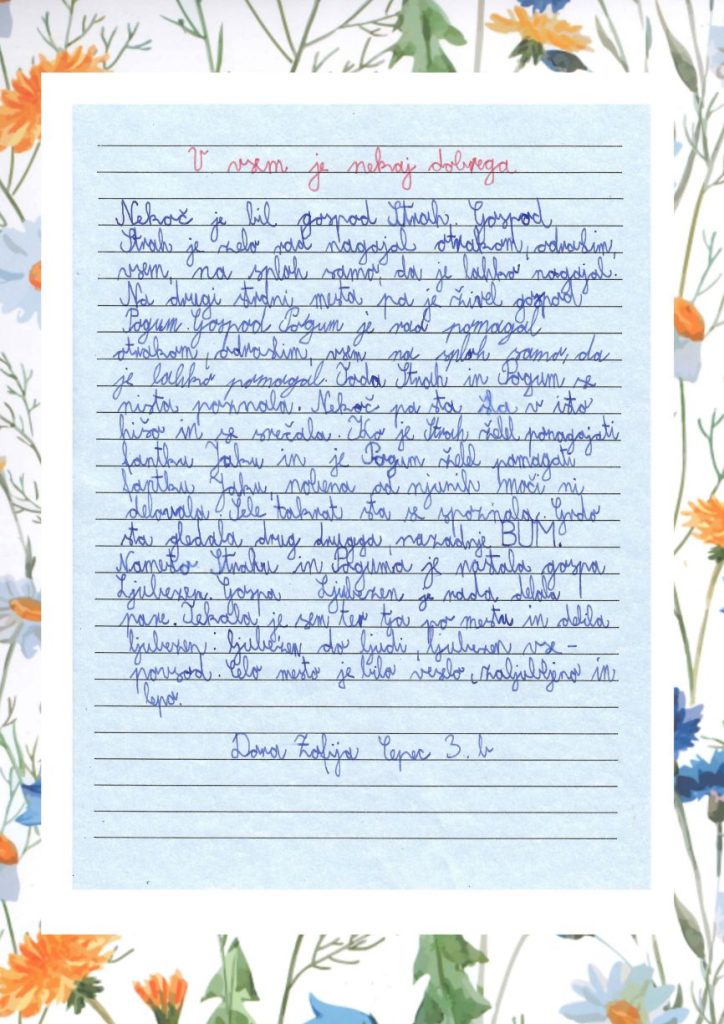 V vsem je nekaj dobrega
Nekoč je bil gospod Strah. Gospod
Strah je zelo rad nagajal otrokom, odraslim,
vsem, na sploh samo, da je lahko nagajal.
Na drugi strani mesta pa je živel gospod
Pogum. Gospod Pogum je rad pomagal
otrokom, odraslim, vsem na sploh samo, da
je lahko pomagal. Toda Strah in Pogum se
nista poznala. Nekoč pa sta šla v isto
hišo in se srečala. Ko je Strah želel ponagajati
fantku Jaku in je Pogum želel pomagati
fantku Jaku, nobena od njunih moči ni
delovala. Šele takrat sta se spoznala. Grdo
sta gledala drug drugega, nazadnje BUM.
Namesto Strahu in Poguma je nastala gospa
Ljubezen. Gospa Ljubezen je rada delala
pare. Tekala je sem ter tja po mestu in delila
ljubezen: ljubezen do ljudi, ljubezen vse-
povsod. Celo mesto je bilo veselo, zaljubljeno in
lepo.
Dora Zofija Cepec 3. b